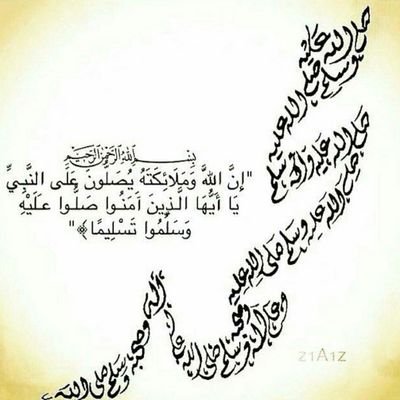 بسم الله الرحمن الرحيم
"إِنَّ اللَّهَ وَمَلَائِكَتَهُ يُصَلُّونَ عَلَى النَّبِيِّ
يَا أَيُّهَا الَّذِينَ آمَنُوا صَلُّوا عَلَيْهِ
وَسَلِّمُوا تَسْلِيمًا﴾"
صلى الله عليه وسلم
صلى الله عليه وسلم
صلى الله عليه وآله
صلى الله عليه وسلم
صلى الله عليه
وعلى آله وصحبه وسلم
صلى الله
آله وصحبه وسلم
صلى الله
z1A1z